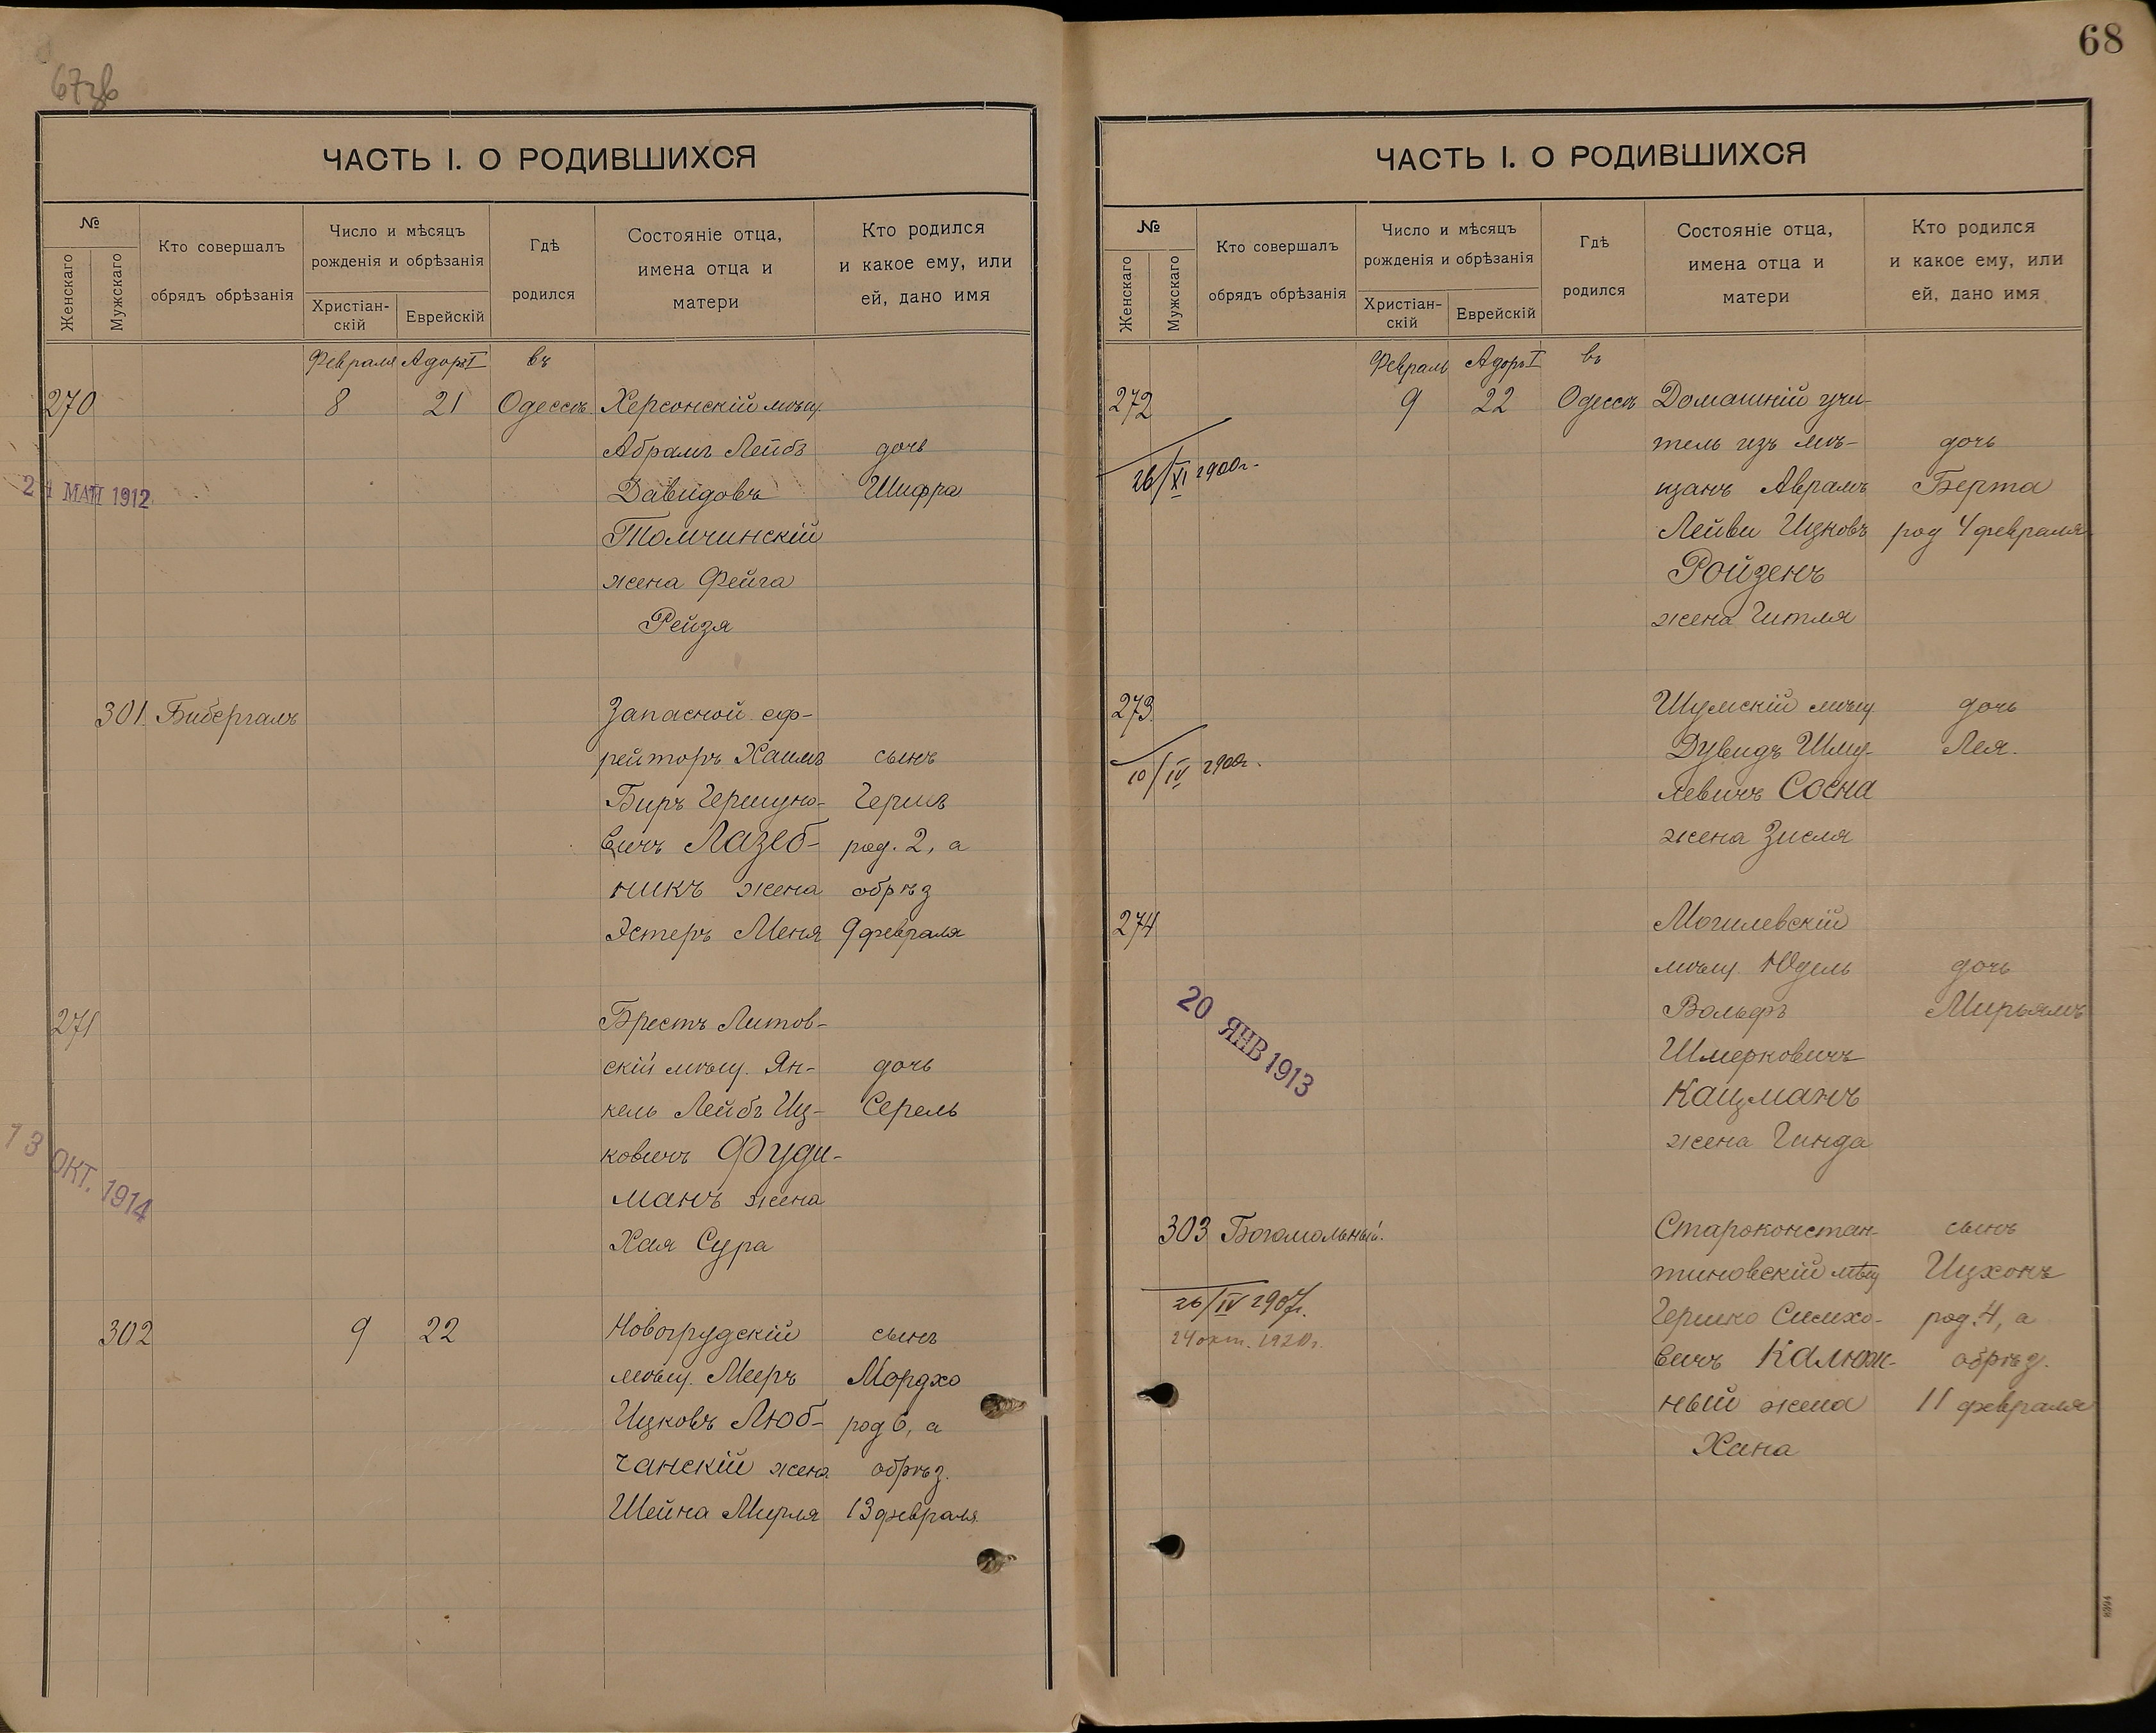 67зв
ЧАСТЬ I. О РОДИВШИХСЯ
№
Женскаго
Мужскаго
Кто совершалъ
обрядъ обрѣзанія
Число и мѣсяцъ
рожденія и обрѣзанія
Христіан-
скій
Еврейскій
Гдѣ
родился
Состояніе отца,
имена отца и
матери
Кто родился
и какое ему, или
ей, дано имя
Февраля Адоръ I въ
270 8 21 Одессѣ Херсонскій мѣщ.
Абрамъ Лейбъ дочь
24 МАЙ 1912 Давидовъ Шифра
Томчинскій
жена Фейга
Рейзя
301. Бибергалъ Запасной еф-
рейторъ Хаимъ сынъ
Биръ Гершуно- Герш
вичъ Лазеб- род. 2, а
никъ жена обрѣз
Эстеръ Меня 9 февраля
271 Брестъ Литов-
скій мѣщ. Ян- дочь
кель Лейбъ Иц- Серель
ковичъ Фуди-
13 ОКТ. 1914 манъ жена
Хая Сура
302 9 22 Новогрудскій сынъ
мѣщ. Мееръ Мордхо
Ицковъ Люб- род 6, а
чанскій жена обрѣз.
Шейна Мирля 13 февраля
68
ЧАСТЬ I. О РОДИВШИХСЯ
№
Женскаго
Мужскаго
Кто совершалъ
обрядъ обрѣзанія
Число и мѣсяцъ
рожденія и обрѣзанія
Христіан-
скій
Еврейскій
Гдѣ
родился
Состояніе отца,
имена отца и
матери
Кто родился
и какое ему, или
ей, дано имя
Февраль Адоръ I въ
272 9 22 Одессѣ Домашній учи-
тель изъ мѣ- дочь
26/XI 1900г. щанъ Аврамъ Берта
Лейви Ицковъ род 4 февраля
Ройзенъ
жена Гитля
273. Шумскій мѣщ дочь
Дувидъ Шму- Лея.
10/IV 1900г. левичъ Сосна
жена Зисля
274 Могилевскій
мѣщ. Юдель дочь
Вольфъ Мирьямъ
20 ЯНВ 1913 Шмерковичъ
Кацманъ
жена Гинда
303 Богомольный. Староконстан- сынъ
тиновскій мѣщ Ицхокъ
26/IV 1907г. Гершко Симхо- род. 4, а
24 окт. 1920г. вичъ Калюж- обрѣз.
ный жена 11 февраля
Хана
8394